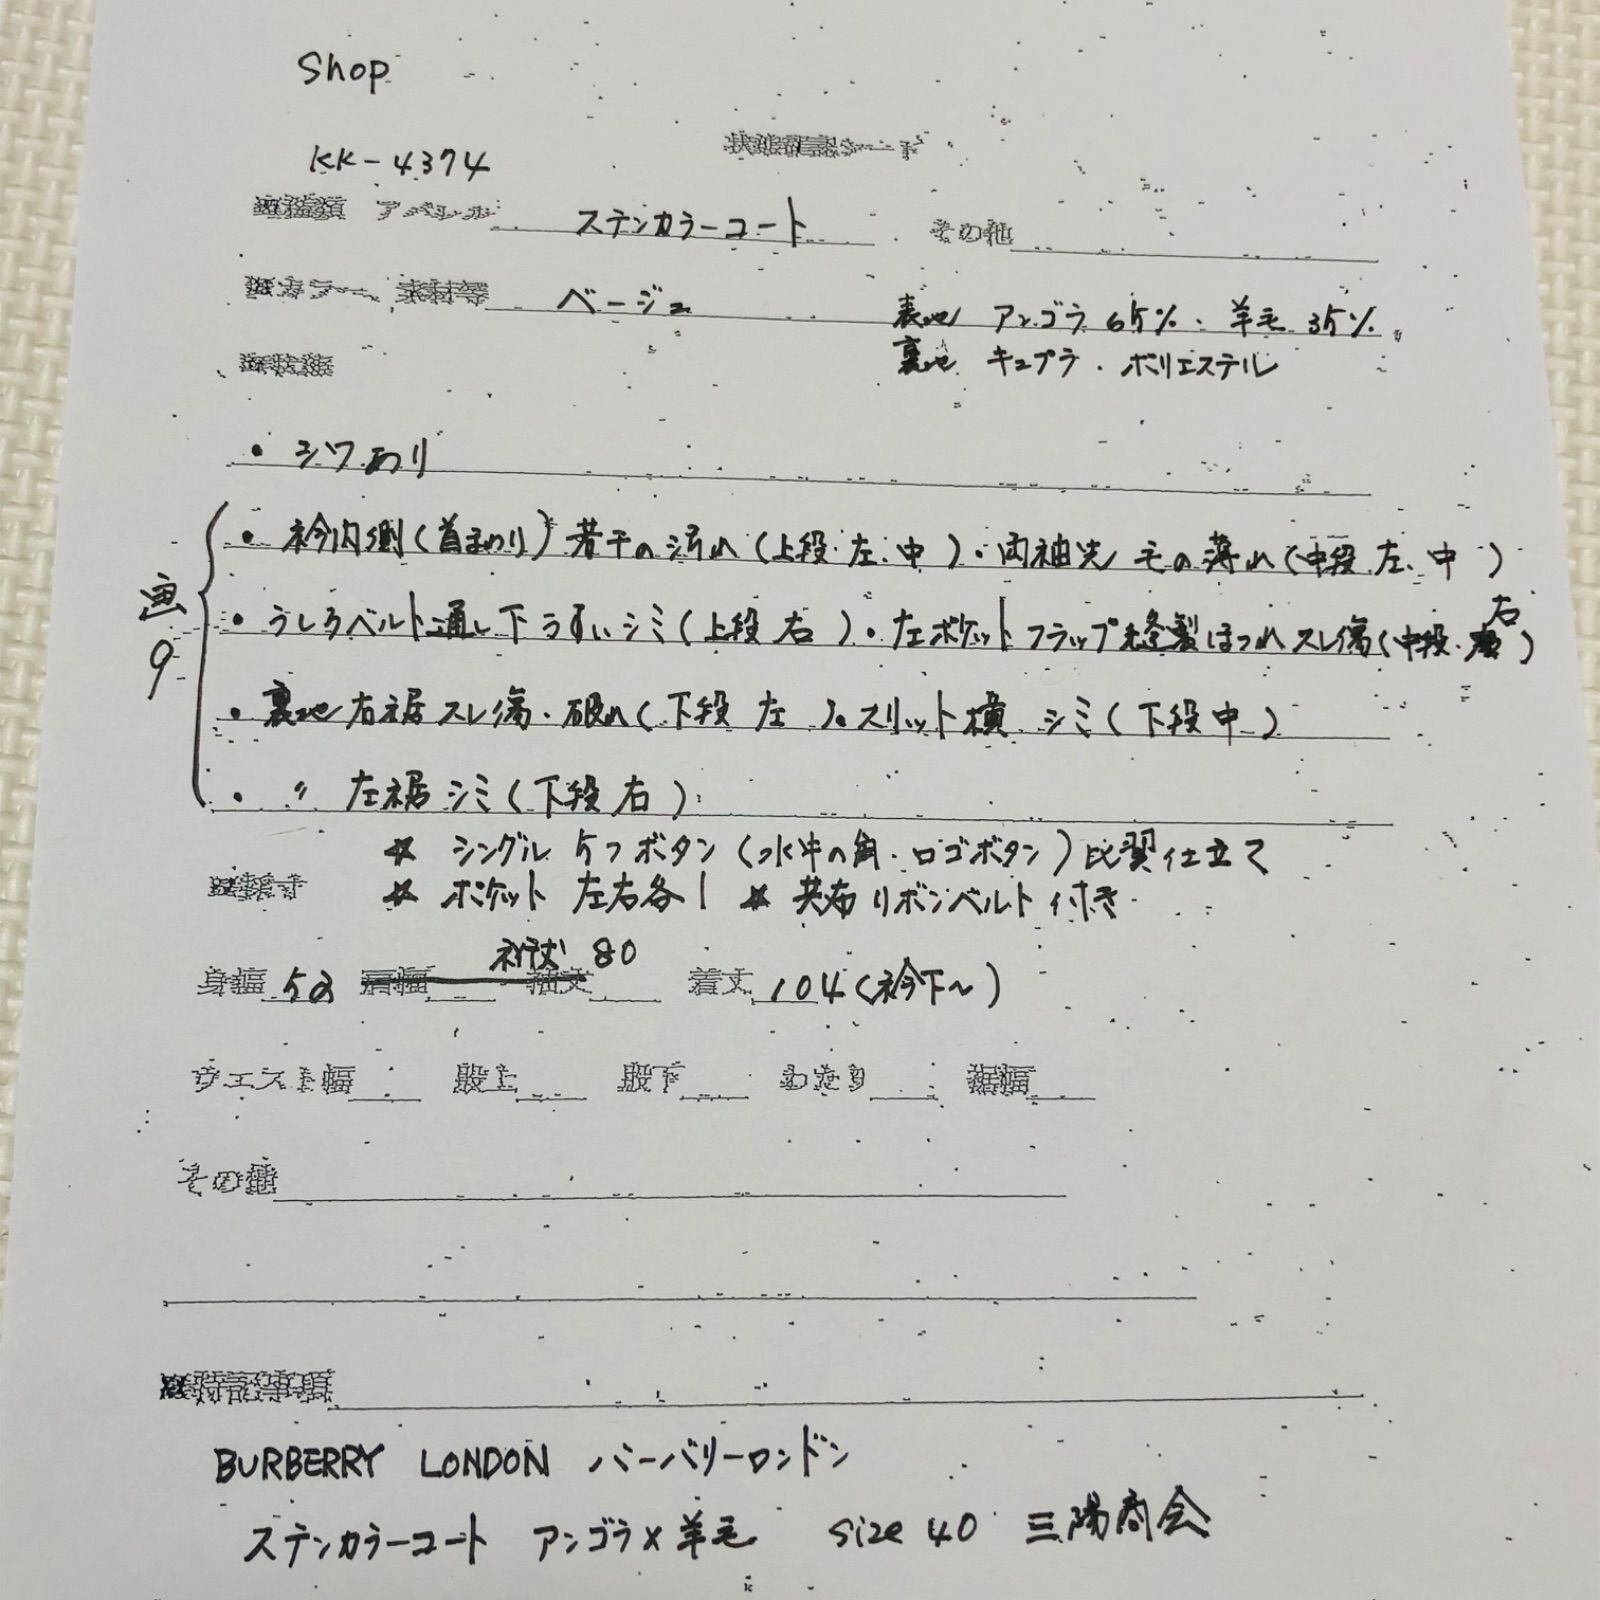 Shop
状態確認シート
KK-4374
アパレル ステンカラーコート その他
カラー、素材等 ベージュ 表地 アンゴラ 65%・羊毛 35%
裏地 キュプラ・ポリエステル
・シワあり
画9
・衿内側(首まわり)若干の汚れ(上段・左、中)・両袖先 毛の薄れ(中段 左、中)
・うしろベルト通し下うすいシミ(上段 右)・左ポケットフラップ縫製ほつれスレ傷(中段・右)
・裏地右裾スレ傷・破れ(下段 左)・スリット横 シミ(下段中)
・〃 左裾シミ(下段右)
* シングル 5つボタン(水牛の角・ロゴボタン)比翼仕立て
採寸 * ポケット 左右各1 * 共布リボンベルト付き
身幅 52 肩幅 袖丈 裄丈 80 着丈 104(衿下〜)
ウエスト幅 股上 股下 わたり 裾幅
その他
特記事項
BURBERRY LONDON バーバリーロンドン
ステンカラーコート アンゴラ×羊毛 size 40 三陽商会